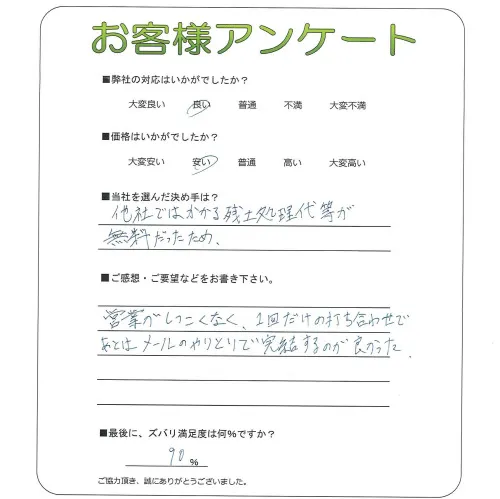 お客様アンケート
■弊社の対応はいかがでしたか?
大変良い 良い 普通 不満 大変不満
■価格はいかがでしたか?
大変安い 安い 普通 高い 大変高い
■当社を選んだ決め手は?
他社ではかかる残土処理代等が
無料だったため、
■ご感想・ご要望などをお書き下さい。
営業がしつこくなく、1回だけの打ち合わせで
あとはメールのやりとりで完結するのが良かった.
■最後に、ズバリ満足度は何%ですか?
90 %
ご協力頂き、誠にありがとうございました。